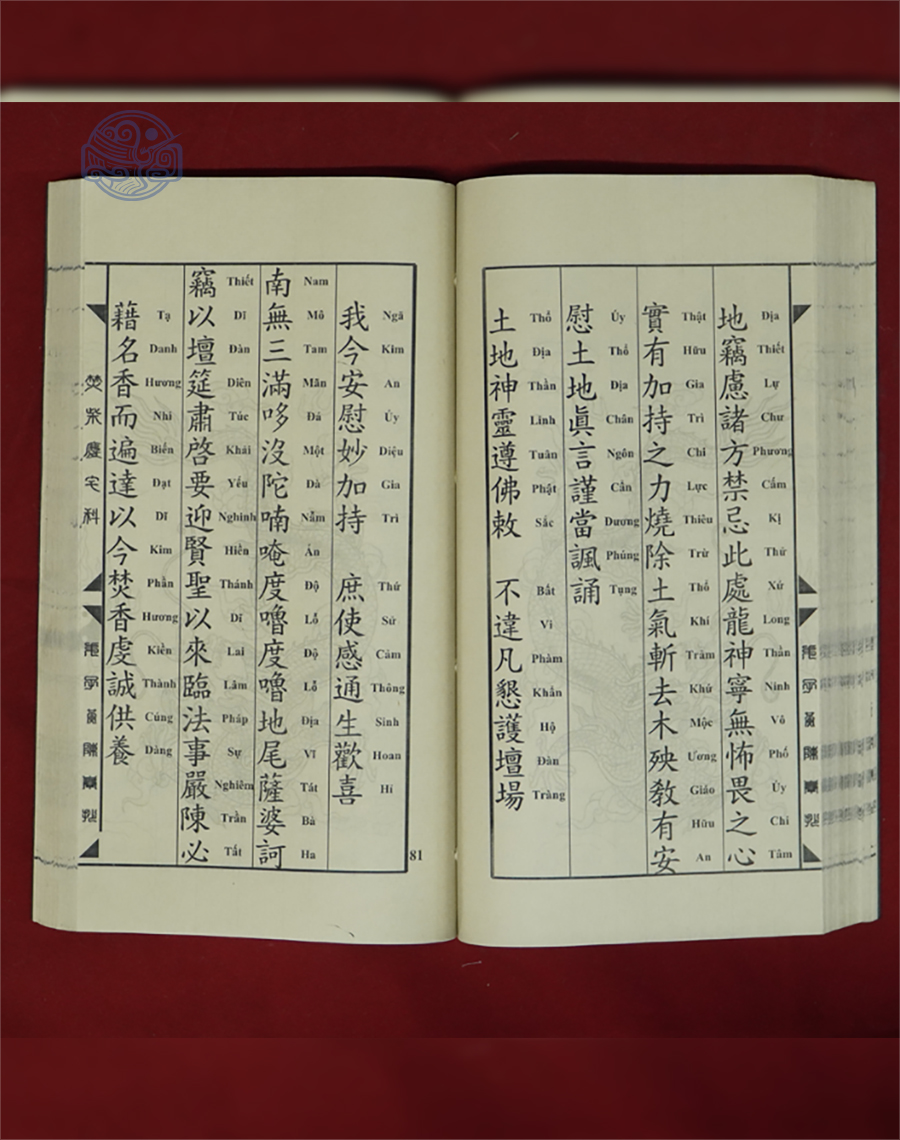 地竊慮諸方禁忌此處龍神寧無怖畏之心
Địa Thiết Lự Chư Phương Cấm Kị Thử Xứ Long Thần Ninh Vô Phố Úy Chi Tâm
實有加持之力燒除土氣斬去木殃教有安
Thật Hữu Gia Trì Chi Lực Thiêu Trừ Thổ Khí Trảm Khứ Mộc Ương Giáo Hữu An
慰土地眞言謹當諷誦
Ủy Thổ Địa Chân Ngôn Cẩn Đương Phúng Tụng
土地神靈遵佛敕 不違凡懇護壇場
Thổ Địa Thần Linh Tuân Phật Sắc Bất Vi Phàm Khẩn Hộ Đàn Tràng
我今安慰妙加持 庶使感通生歡喜
Ngã Kim An Ủy Diệu Gia Trì Thứ Sử Cảm Thông Sinh Hoan Hỉ
南無三滿哆沒陀喃唵度嚕度嚕地尾薩婆訶
Nam Mô Tam Mãn Đá Một Đà Nẫm Án Độ Lỗ Độ Lỗ Địa Vĩ Tát Bà Ha
竊以壇筵肅啓要迎賢聖以來臨法事嚴陳必
Thiết Dĩ Đàn Diên Túc Khải Yếu Nghinh Hiền Thánh Dĩ Lai Lâm Pháp Sự Nghiêm Trần Tất
藉名香而遍達以今焚香虔誠供養
Tạ Danh Hương Nhi Biến Đạt Dĩ Kim Phần Hương Kiền Thành Cúng Dàng
81